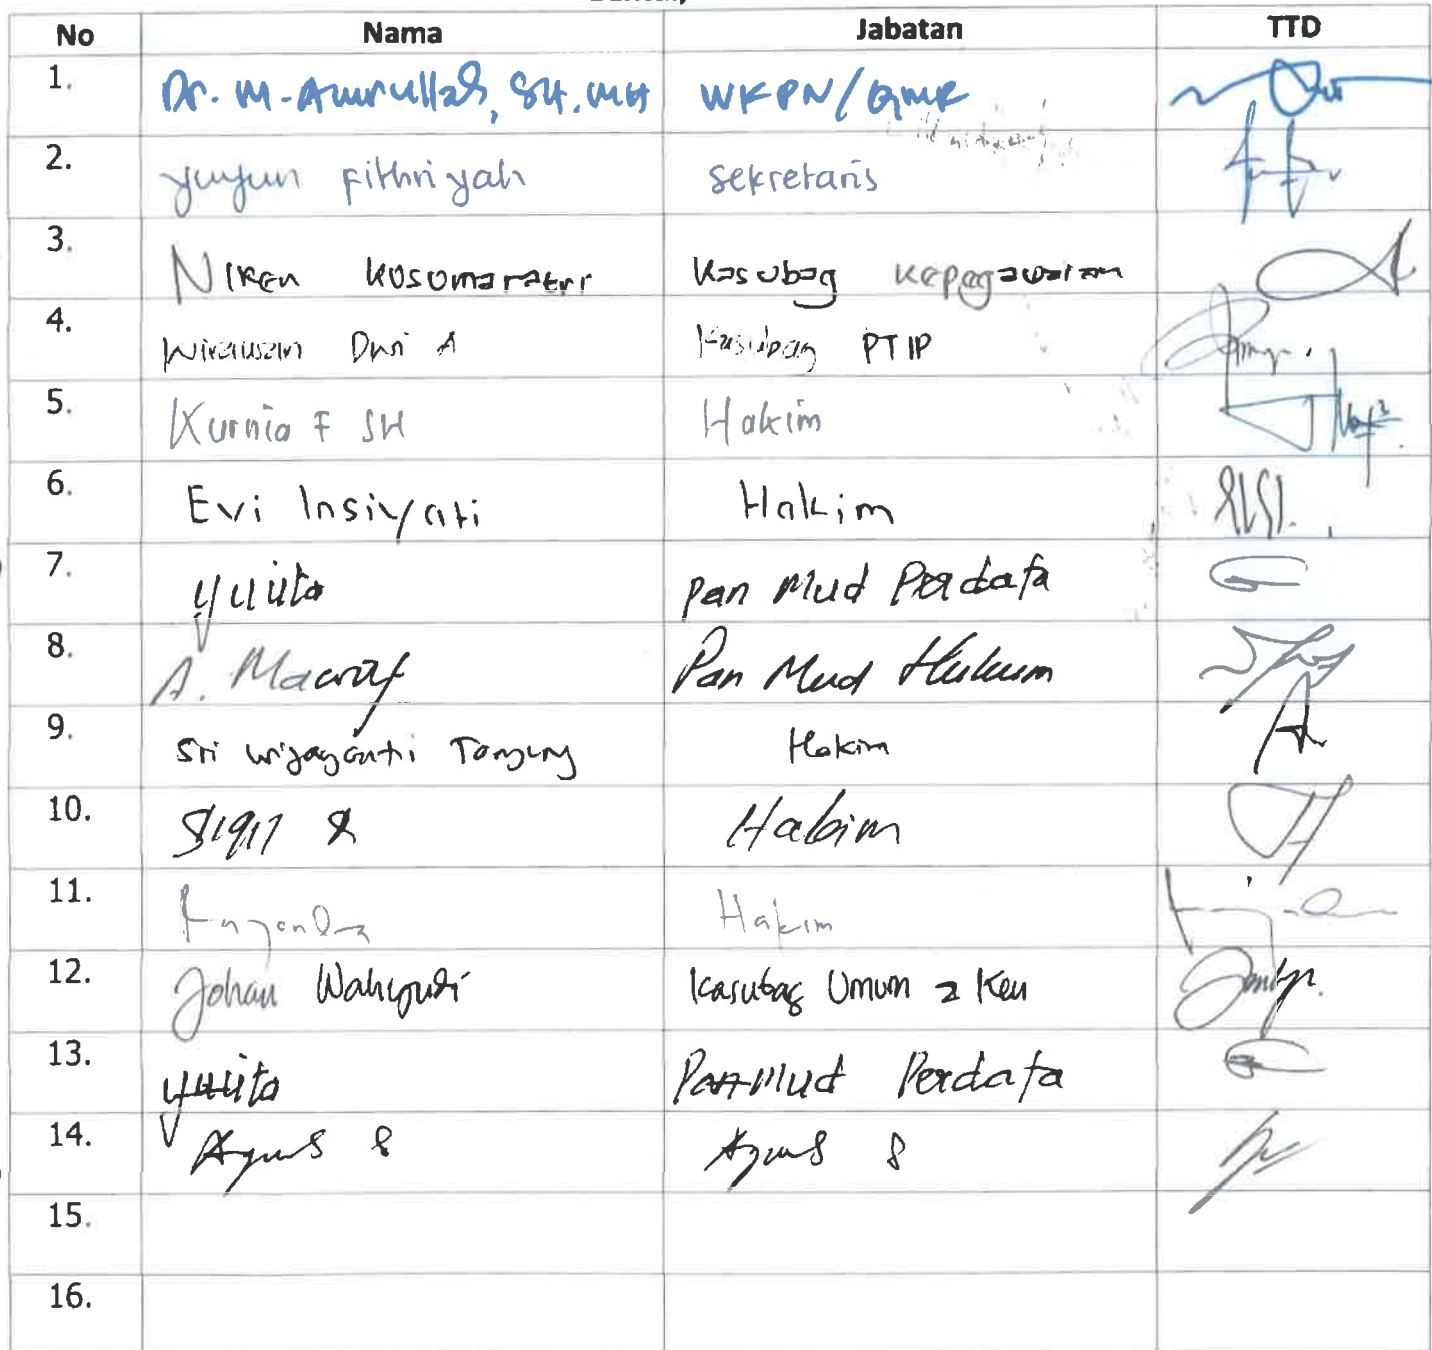 No Nama Jabatan TTD
1. Dr. M. Amrullah, SH. MH WKPN/QMR
2. yuyun Fithriyah Sekretaris
3. Niken Kusumarateri Kasubag Kepegawaian
4. Dwi A Kasubag PTIP
5. Kurnia F SH Hakim
6. Evi Insiyati Hakim
7. yulita Pan Mud Perdata
8. A. Macruf Pan Mud Hukum
9. Sri wijayanti Tanjung Hakim
10. Sigit S Hakim
11. Hakim
12. Johan Wahyudi Kasubag Umum & Keu
13. yulita Pan Mud Perdata
14. Agus S Agus S
15.
16.